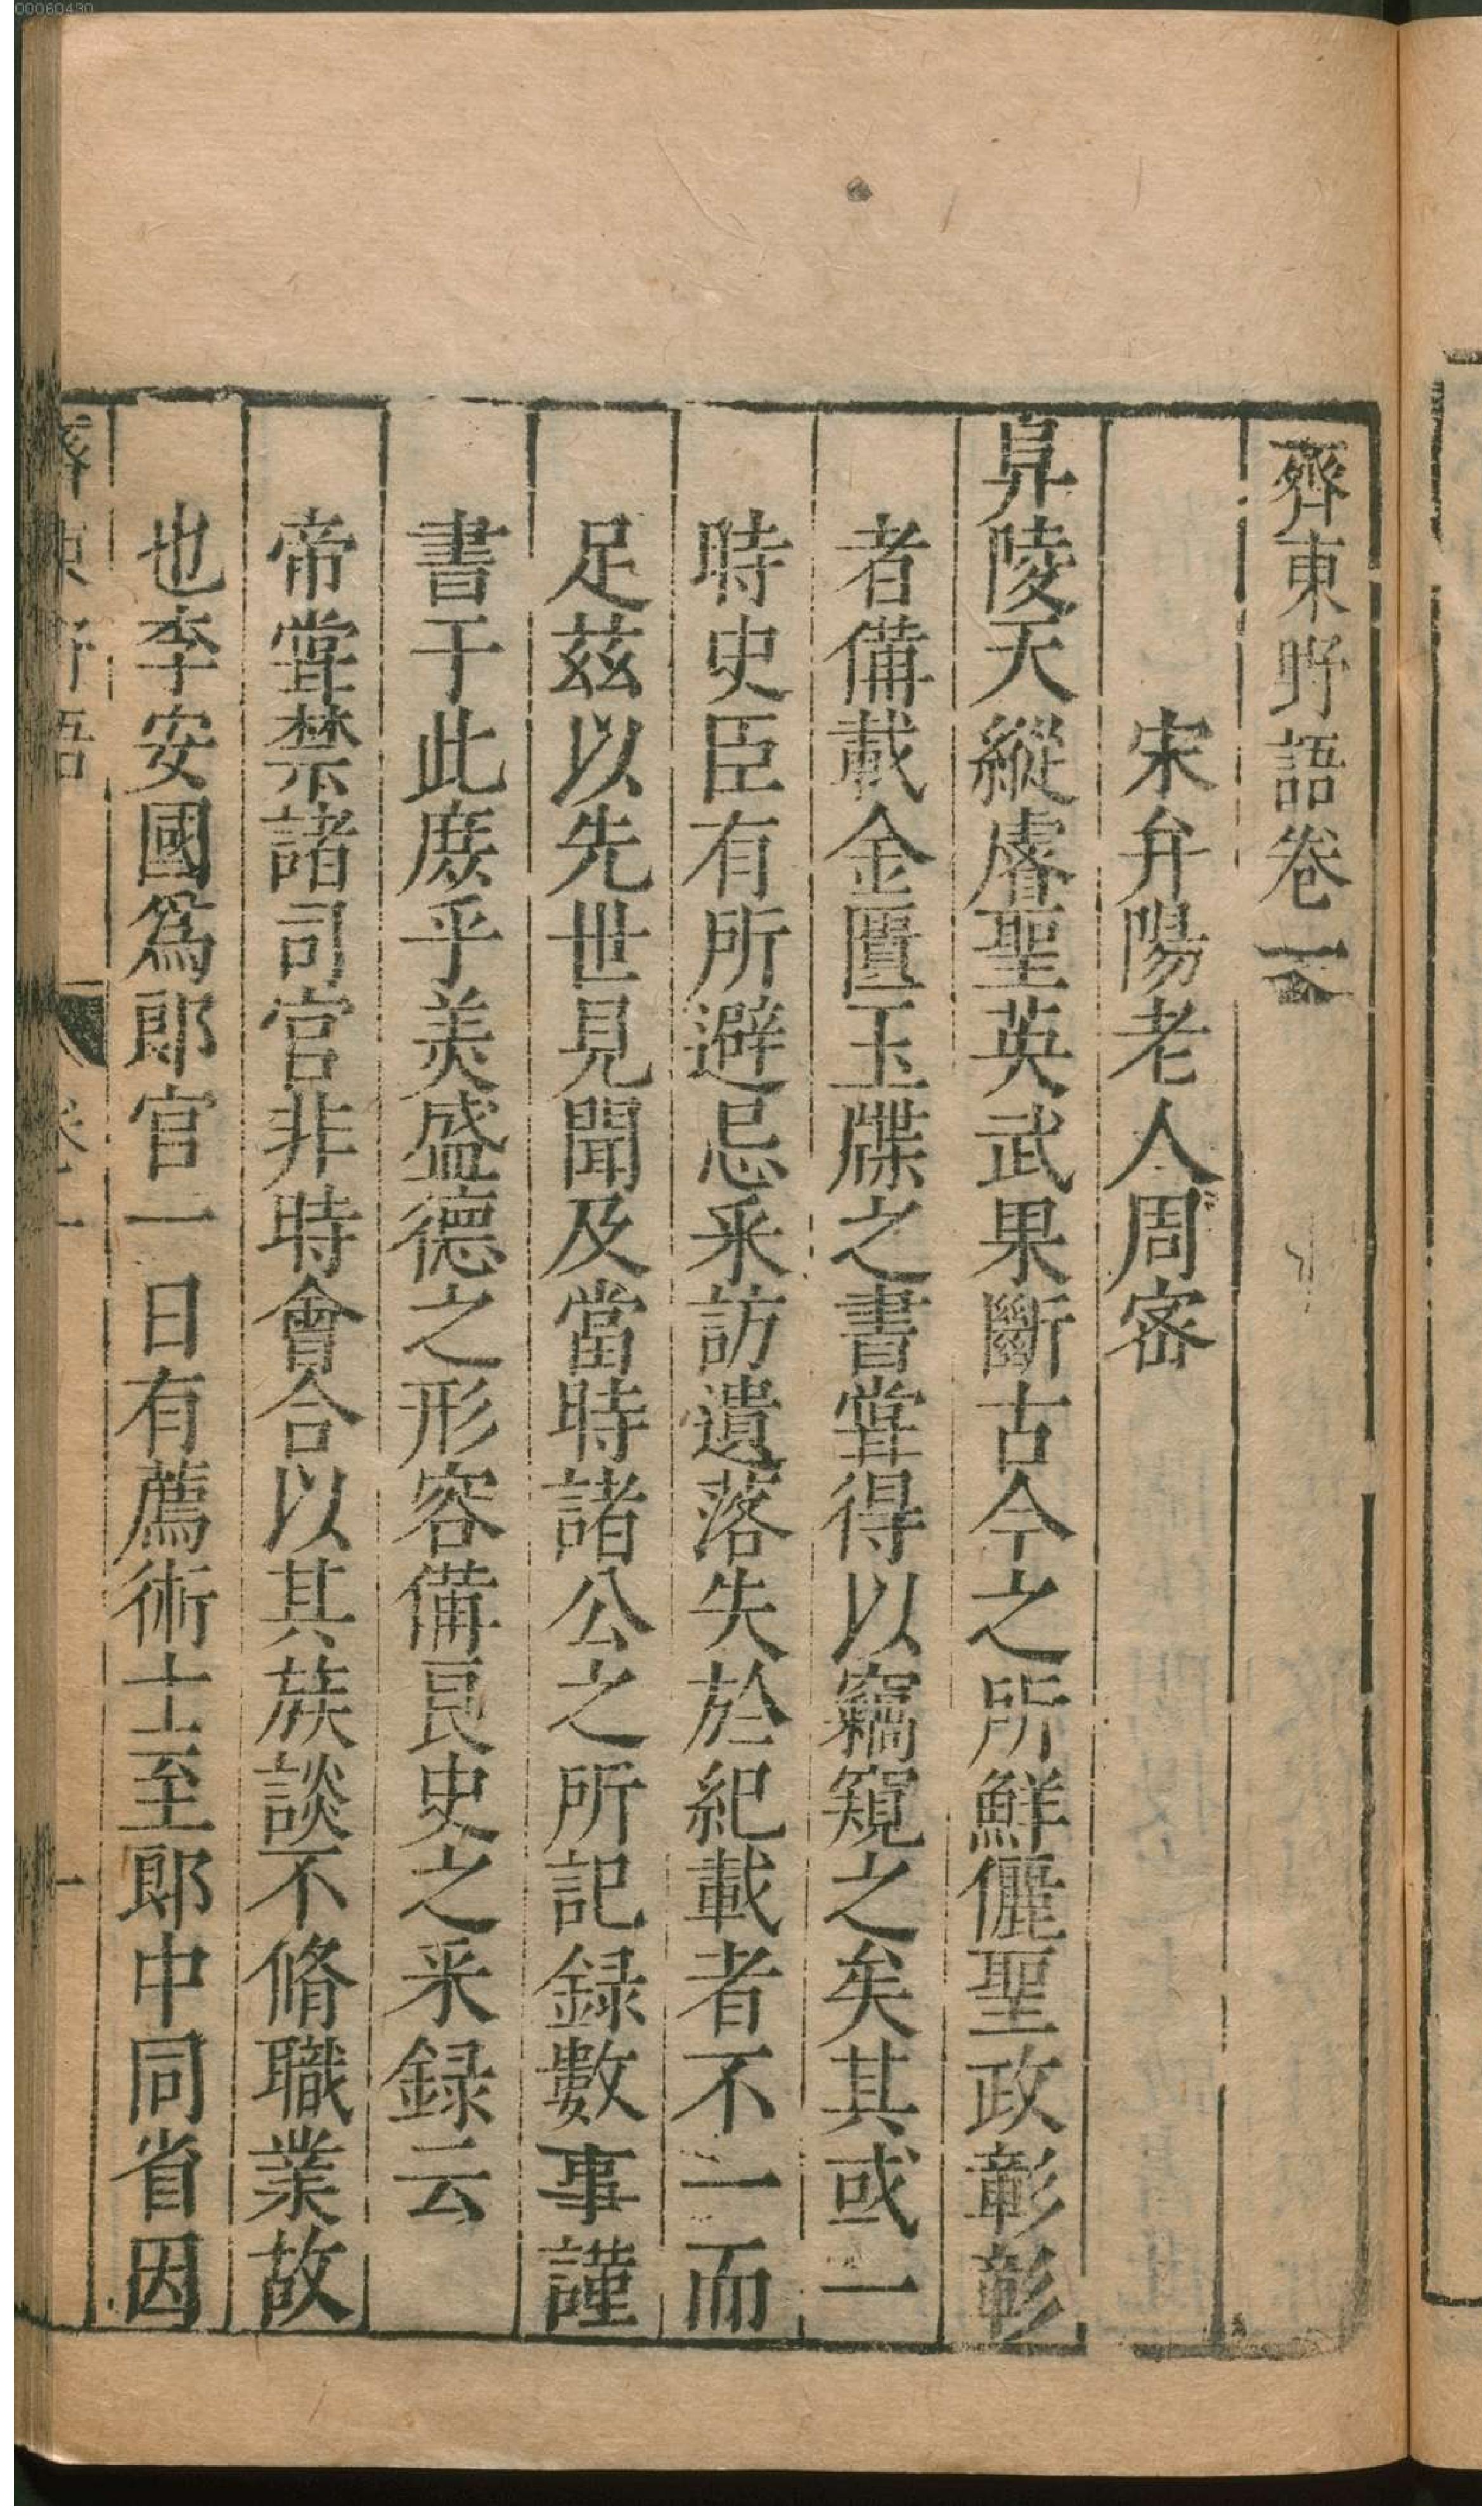 齊東野語卷一
宋弁陽老人周密
阜陵天縱睿聖英武果斷古今之所鮮儷聖政彰彰
者備載金匱玉牒之書甞得以竊窺之矣其或一
時史臣有所避忌采訪遺落失於紀載者不一而
足茲以先世見聞及當時諸公之所記録數事謹
書于此庶乎美盛德之形容備良史之采録云
帝甞禁諸司官非時會合以其族談不脩職業故
也李安國爲郎官一日有薦術士至郎中同省因
齊東野語 卷一 一
00060430